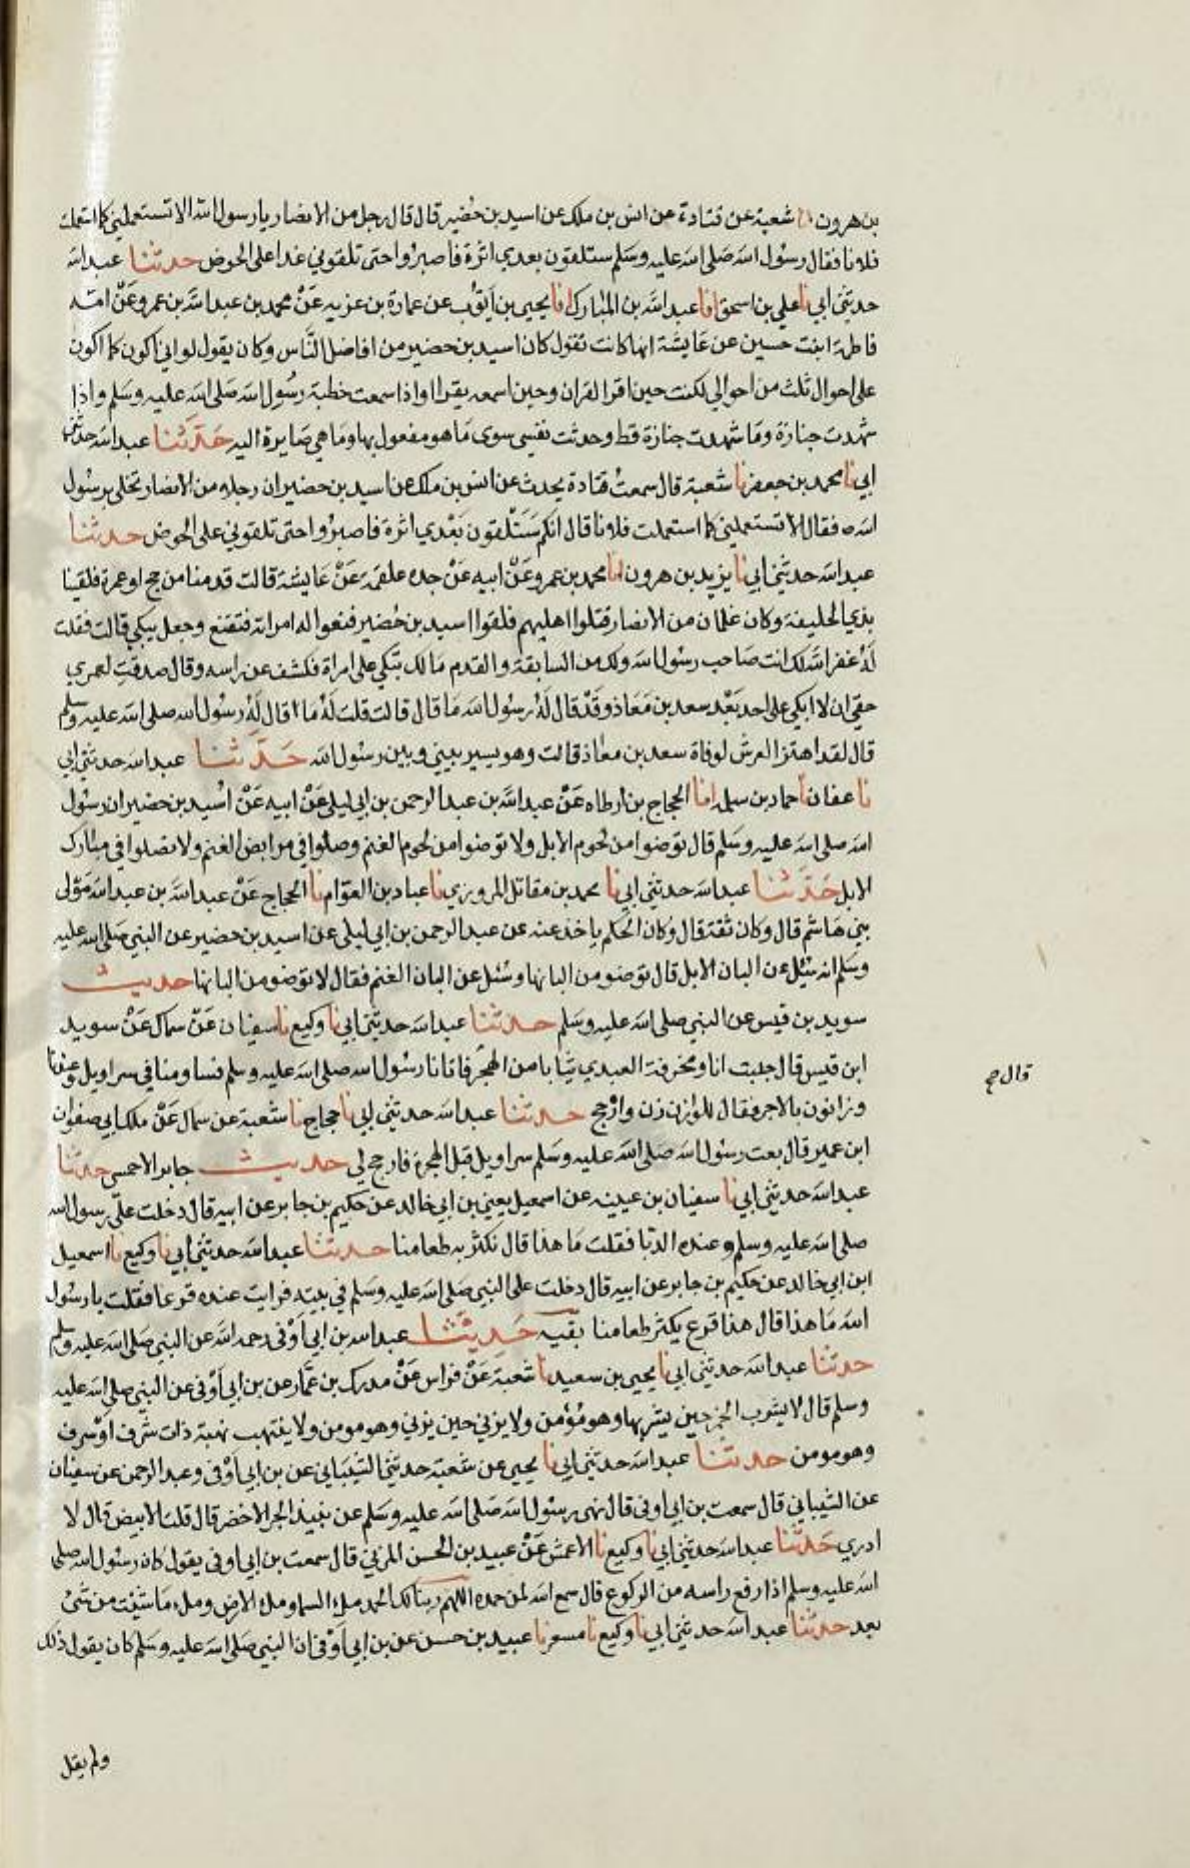 بن هرون نا شعبة عن قتادة عن انس بن ملك عن اسيد بن حضير قال قال رجل من الانصار يا رسول الله الا تستعملني كما استعملت
فلانا فقال رسول الله صلى الله عليه وسلم ستلقون بعدي اثرة فاصبروا حتى تلقوني غدا على الحوض حدثنا عبد الله
حدثني ابي نا علي بن اسحق انا عبد الله بن المبارك انا يحيى بن ايوب عن عمارة بن غزيه عن محمد بن عبد الله بن عمرو عن امه
فاطمة ابنت حسين عن عايشة انها كانت تقول كان اسيد بن حضير من افاضل الناس وكان يقول لو اني اكون كما اكون
على احوال ثلث من احوالي لكنت حين اقرا القران وحين اسمعه يقرا واذا سمعت خطبة رسول الله صلى الله عليه وسلم واذا
شهدت جنازة وما شهدت جنازة قط وحدثت نفسي سوى ما هو مفعول بها وما هي صايرة اليه حدثنا عبد الله حدثني
ابي نا محمد بن جعفر نا شعبة قال سمعت قتادة يحدث عن انس بن ملك عن اسيد بن حضير ان رجلا من الانصار تخلى برسول
الله فقال الا تستعملني كما استعملت فلانا قال انكم ستلقون بعدي اثرة فاصبروا حتى تلقوني على الحوض حدثنا
عبد الله حدثني ابي نا يزيد بن هرون انا محمد بن عمرو عن ابيه عن جده علقمة عن عايشة قالت قدمنا من حج او عمرة فلقينا
بذي الحليفة وكان غلمان من الانصار قتلوا اهليهم فلقوا اسيد بن حضير فنعوا له امراته فتقنع وجعل يبكي قالت فقلت
له غفر الله لك انت صاحب رسول الله ولك من السابقة والقدم ما لك تبكي على امراة فكشف عن راسه وقال صدقت لعمري
حقي ان لا ابكي على احد بعد سعد بن معاذ وقد قال له رسول الله ما قال قالت قلت له ما قال له رسول الله صلى الله عليه وسلم
قال لقد اهتز العرش لوفاة سعد بن معاذ قالت وهو يسير بيني وبين رسول الله حدثنا عبد الله حدثني ابي
نا عفان نا حماد بن سلمه انا الحجاج بن ارطاه عن عبد الله بن عبد الرحمن بن ابي ليلى عن ابيه عن اسيد بن حضير ان رسول
الله صلى الله عليه وسلم قال توضوا من لحوم الابل ولا توضوا من لحوم الغنم وصلوا في مرابض الغنم ولا تصلوا في مبارك
الابل حدثنا عبد الله حدثني ابي نا محمد بن مقاتل المروزي نا عباد بن العوام نا الحجاج عن عبد الله بن عبد الله مولى
بني هاشم قال وكان ثقة قال وكان الحكم ياخذ عنه عن عبد الرحمن بن ابي ليلى عن اسيد بن حضير عن النبي صلى الله عليه
وسلم انه سئل عن البان الابل قال توضو من البانها وسئل عن البان الغنم فقال لا توضو من البانها حديث
سويد بن قيس عن النبي صلى الله عليه وسلم حدثنا عبد الله حدثني ابي نا وكيع نا سفيان عن سماك عن سويد
ابن قيس قال جلبت انا ومخرفة العبدي ثيابا من الهجر فاتانا رسول الله صلى الله عليه وسلم فساومنا في سراويل وعندنا
وزانون بالاجر فقال للوزان زن وارجح حدثنا عبد الله حدثني ابي نا حجاج نا شعبة عن سماك عن ملك ابي صفوان
ابن عمير قال بعت رسول الله صلى الله عليه وسلم سراويل قبل الهجرة فارجح لي حديث جابر الاحمسي حدثنا
عبد الله حدثني ابي نا سفيان بن عيينه عن اسمعيل يعني بن ابي خالد عن حكيم بن جابر عن ابيه قال دخلت على رسول الله
صلى الله عليه وسلم وعنده الدبا فقلت ما هذا قال نكثر به طعامنا حدثنا عبد الله حدثني ابي نا وكيع نا اسمعيل
ابن ابي خالد عن حكيم بن جابر عن ابيه قال دخلت على النبي صلى الله عليه وسلم في بيته فرايت عنده قرعا فقلت يا رسول
الله ما هذا قال هذا قرع يكثر طعامنا بقيه حديث عبد الله بن ابي اوفى رحمه الله عن النبي صلى الله عليه وسلم
حدثنا عبد الله حدثني ابي نا يحيى بن سعيد نا شعبة عن فراس عن مدرك بن عمار عن بن ابي اوفى عن النبي صلى الله عليه
وسلم قال لا يشرب الخمر حين يشربها وهو مؤمن ولا يزني حين يزني وهو مومن ولا ينتهب نهبة ذات شرف او سرف
وهو مومن حدثنا عبد الله حدثني ابي نا يحيى عن شعبة حدثني الشيباني عن بن ابي اوفى وعبد الرحمن عن سفيان
عن الشيباني قال سمعت بن ابي اوفى قال نهى رسول الله صلى الله عليه وسلم عن نبيذ الجر الاخضر قال قلت الابيض قال لا
ادري حدثنا عبد الله حدثني ابي نا وكيع نا الاعمش عن عبيد بن الحسن المزني قال سمعت بن ابي اوفى يقول كان رسول الله صلى
الله عليه وسلم اذا رفع راسه من الركوع قال سمع الله لمن حمده اللهم ربنا لك الحمد ملء السما وملء الارض وملء ما شئت من شئ
بعد حدثنا عبد الله حدثني ابي نا وكيع نا مسعر نا عبيد بن حسن عن بن ابي اوفى ان النبي صلى الله عليه وسلم كان يقول ذلك
ولم يقل
قال صح